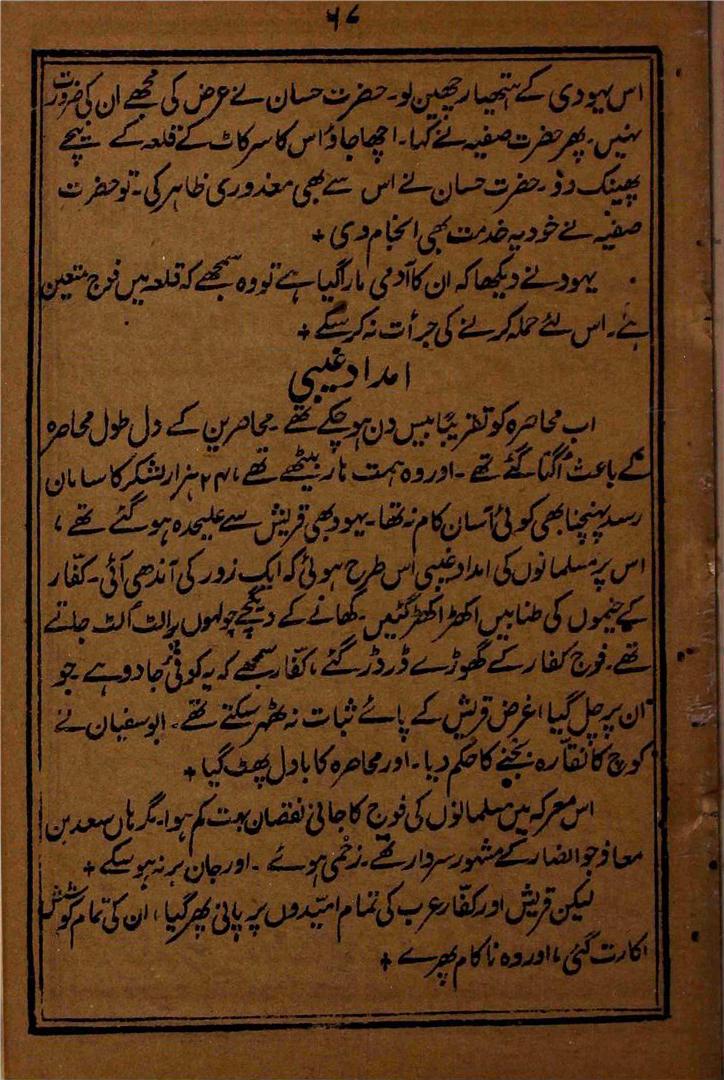 ۶۷
اس یہودی کے ہتھیار چھین لو۔ حضرت حسان نے عرض کی مجھے ان کی ضرورت
نہیں۔ پھر حضرت صفیہ نے کہا۔ اچھا جاؤ اس کا سر کاٹ کے قلعہ کے نیچے
پھینک دو۔ حضرت حسان نے اس سے بھی معذوری ظاہر کی۔ تو حضرت
صفیہ نے خود یہ خدمت بھی انجام دی +
یہود نے دیکھا کہ ان کا آدمی مارا گیا ہے تو وہ سمجھے کہ قلعہ میں فوج متعین
ہے۔ اس لئے حملہ کرنے کی جرأت نہ کر سکے +
امداد غیبی
اب محاصرہ کو تقریباً بیس دن ہو چکے تھے۔ محاصرین کے دل طول محاصرہ
کے باعث اُکتا گئے تھے۔ اور وہ ہمت ہار بیٹھے تھے، ۲۴ ہزار لشکر کا سامان
رسد پہنچنا بھی کوئی آسان کام نہ تھا۔ یہود بھی قریش سے علیحدہ ہو گئے تھے،
اس پر مسلمانوں کی امداد غیبی اس طرح ہوئی کہ ایک زور کی آندھی آئی۔ کفّار
کے خیموں کی طنابیں اکھڑ اکھڑ گئیں۔ کھانے کے دیگچے چولہوں پر الٹ اُلٹ جاتے
تھے۔ فوج کفار کے گھوڑے ڈر ڈر گئے، کفّار سمجھے کہ یہ کوئی جادو ہے۔ جو
ان پر چل گیا، غرض قریش کے پائے ثبات نہ ٹھہر سکتے تھے۔ ابوسفیان نے
کوچ کا نقّارہ بجنے کا حکم دیا۔ اور محاصرہ کا بادل پھٹ گیا +
اس معرکہ میں مسلمانوں کی فوج کا جانی نقصان بہت کم ہوا۔ مگر ہاں سعد بن
معاذ جو انصار کے مشہور سردار تھے۔ زخمی ہوئے۔ اور جان بر نہ ہو سکے +
لیکن قریش اور کفّار عرب کی تمام امیّدوں پر پانی پھر گیا، ان کی تمام کوشش
اکارت گئی، اور وہ ناکام پھرے +